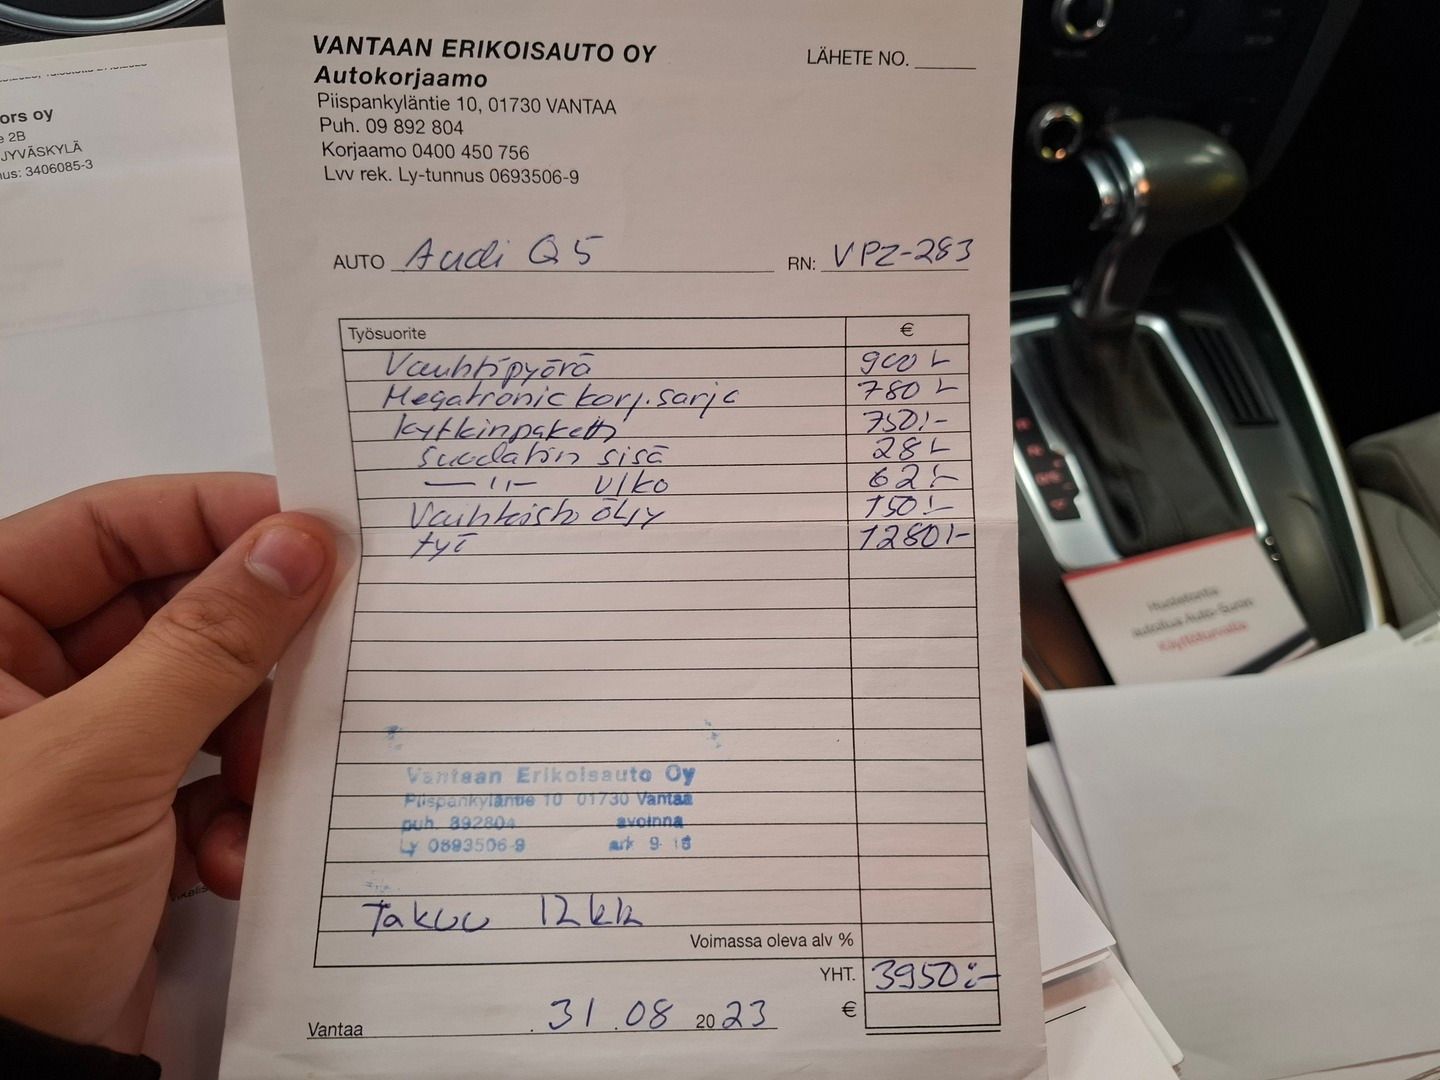 ors oy
e 2B
JYVÄSKYLÄ
nus: 3406085-3
VANTAAN ERIKOISAUTO OY
Autokorjaamo
Piispankyläntie 10, 01730 VANTAA
Puh. 09 892 804
Korjaamo 0400 450 756
Lvv rek. Ly-tunnus 0693506-9
LÄHETE NO.
AUTO Audi Q5 RN: VPZ-283
Työsuorite €
Vauhtipyörä 900:-
Megatronic korj.sarja 780:-
kytkinpaketti 750:-
Suodatin sisä 28:-
— " — ulko 62:-
Vaihteisto öljy 150:-
työ 1280:-
Vantaan Erikoisauto Oy
Piispankyläntie 10 01730 Vantaa
puh. 892804 avoinna
Ly 0693506-9 ark 9-16
Takuu 12kk
Voimassa oleva alv %
YHT. 3950:-
€
Vantaa 31.08 2023
Huoletonta
autoilua Auto-Suran
Käyttöturvalla